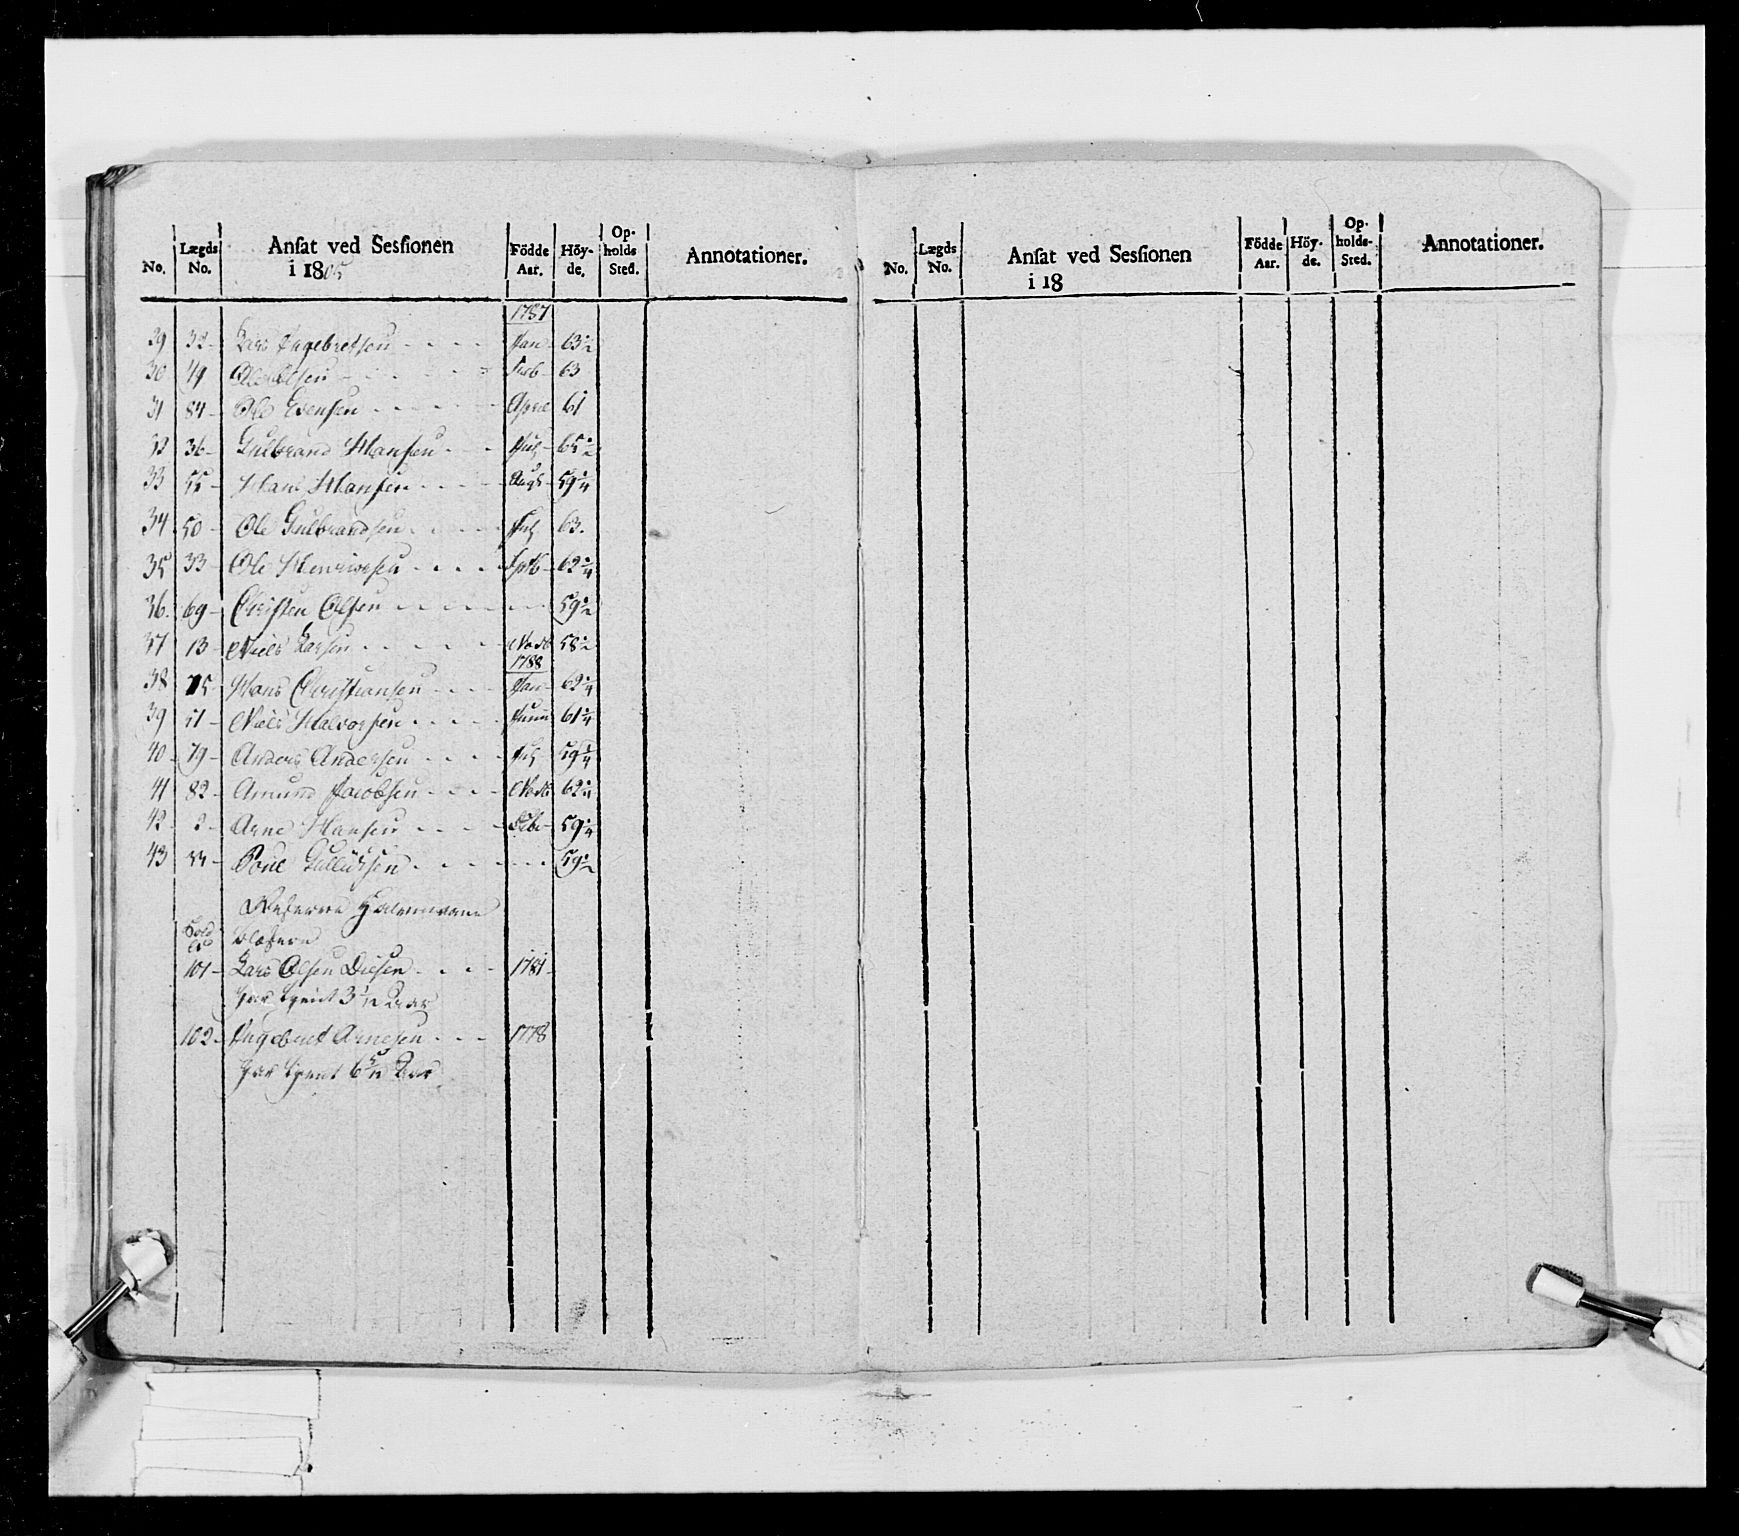 No. Lægds No. Ansat ved Sessionen i 1805 Födde Aar. Höy-de. Op-holds Sted. Annotationer.
1787
29 32 Lars Ingebretsen Jan 63 1/2
30 49 Ole Olsen Feb 63
31 84 Ole Evensen April 61
32 36 Gulbrand Hansen July 65 1/2
33 55 Hans Hansen Augs 59 1/4
34 50 Ole Gulbrandsen July 63.
35 33 Ole Henricsen Sptb 62 1/4
36. 69 Christen Olsen 59 1/2
37 13 Niels Larsen Novb 58 1/2
1788
38 15 Hans Christiansen Jan 62 1/4
39 Niels Halvorsen Juni 61 1/4
40 79 Anders Andersen July 59 1/4
41 82 Amund Jacobsen Novb 62 1/4
42 2 Arne Hansen 59 1/4
43 Poul 59 1/2
Reserve
101 Lars Olsen Diesen 1781
har tient 3 Aar
102 Ingebret Arnesen 1778
har tient 6 5/12 Aar
No. Lægds No. Ansat ved Sessionen i 18 Födde Aar. Höy-de. Op-holds-Sted. Annotationer.